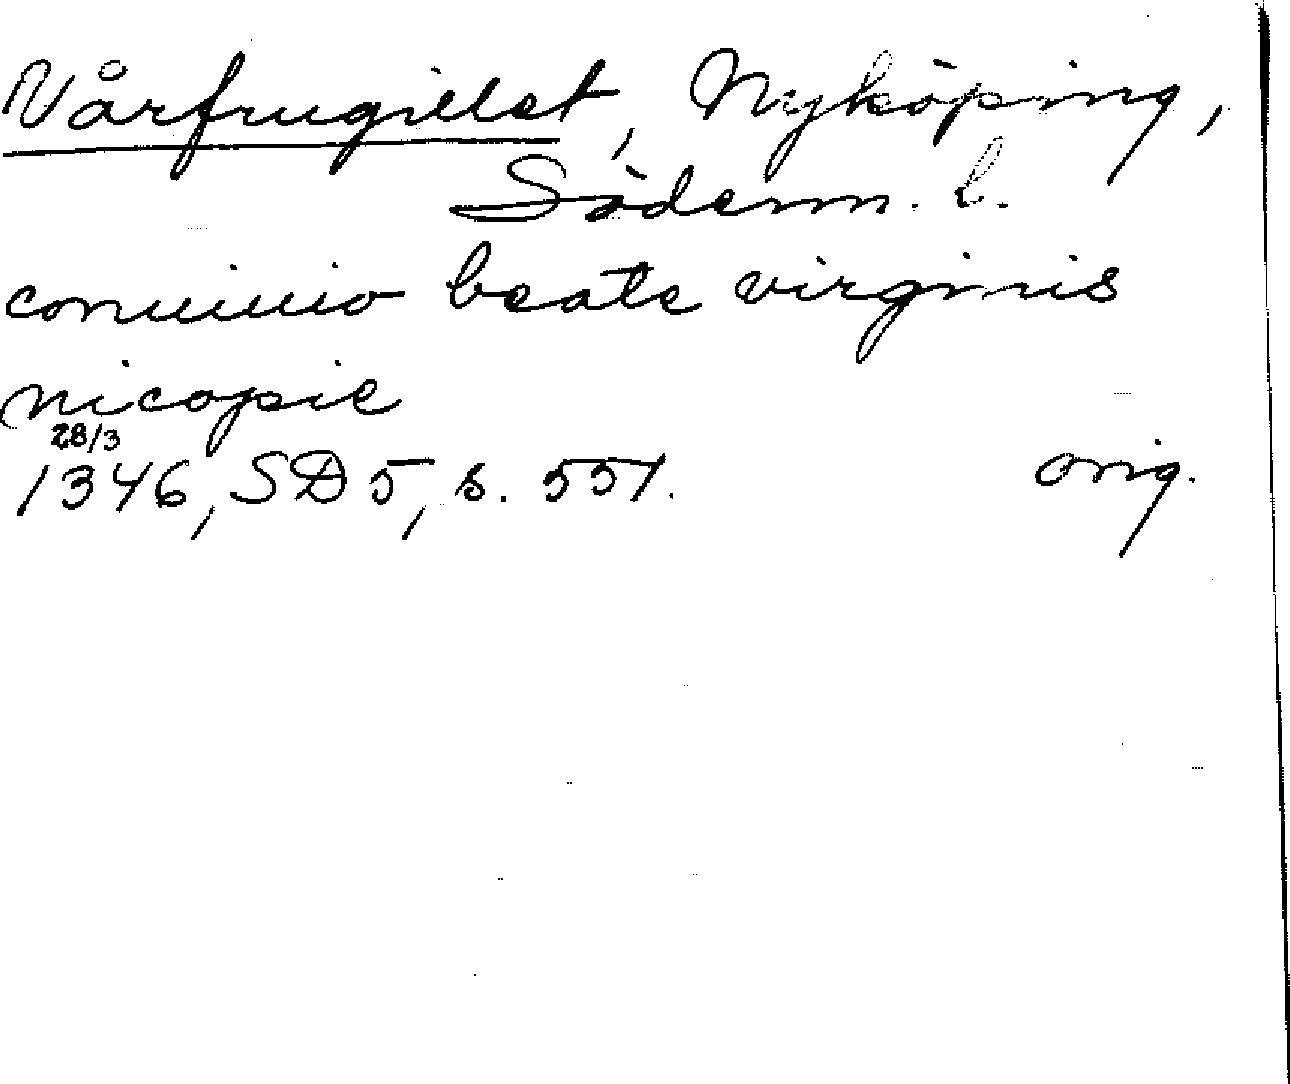 Vårfrugillet, Nyköping,
Söderm. l.
conuiuio beate virginis
nicopie
28/3
1346, SD 5, s. 551. orig.